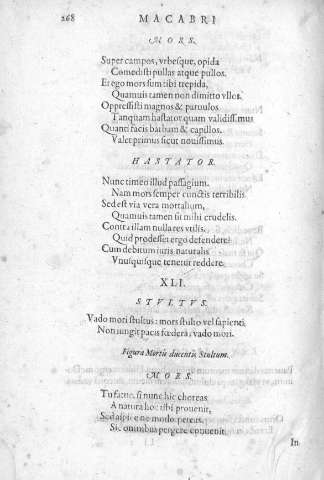 268 MACABRI
MORS.
Super campos, vrbesque, opida
Comedisti pullas atque pullos.
Et ego mors sum tibi trepida,
Quamuis tamen non dimitto vllos.
Oppressisti magnos & paruulos
Tanquam hastator quam validissimus
Quanti facis barbam & capillos.
Valet primus sicut nouissimus.
HASTATOR.
Nunc timeo illud passagium.
Nam mors semper cunctis terribilis.
Sed est via vera mortalium,
Quamuis tamen sit mihi crudelis.
Contra illam nulla res vtilis.
Quid prodesset ergo defendere?
Cum debitum iuris naturalis
Vnusquisque tenetur reddere.
XLI.
STVLTVS.
Vado mori stultus: mors stulto vel sapienti
Non iungit pacis fœdera, vado mori.
Figura Mortis ducentis Stultum.
MORS.
Tu fatue, si nunc hic choreas
A natura hoc tibi prouenit,
Sed aspice ne modo pereas,
Sic omnibus pergere conuenit.
In